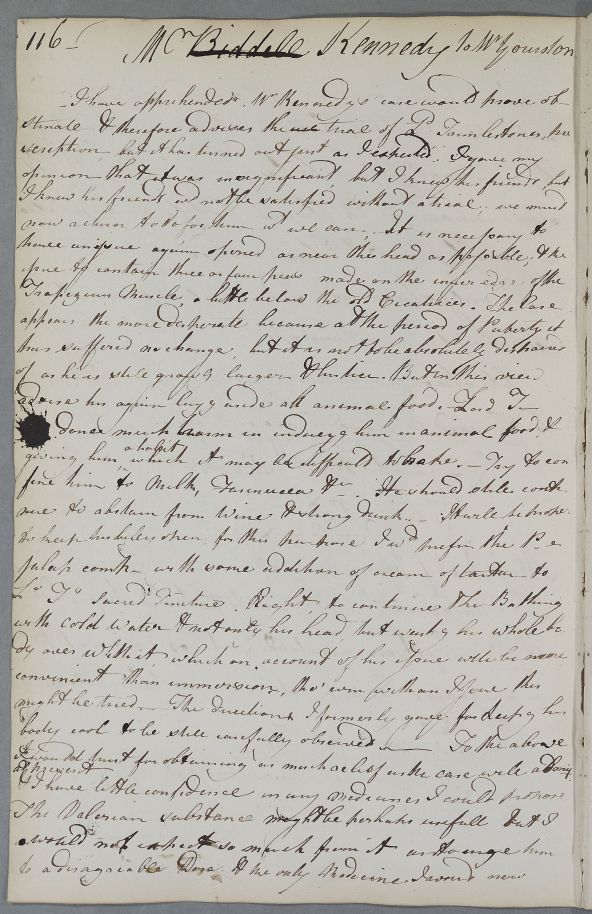 116-
Mr Biddele Kennedy to Mr Yourston
I have apprehended Mr Kennedys case would prove ob=
stinate & therefore advised the trial of Ld Trimlestones pre
scription but it has turned out just as I expected. I gave my
opinion that it was insignificant but I knew his friends, but
I knew his friends wd not be satisfied without a trial. we must
now return to do for him wt we can. It is necessary to
have an issue again opened as near the head as possible, & the
issue to contain three or four peas made on the inner edge of the
Trapezius Muscle, a little below the old Cicatrices. The Case
appears the more desperate because at the period of Puberty it
has suffered no change, but it is not to be absolutely despaired
of as he is still growg larger & lustier. But in this view
advise his again layg aside all animal food. Lord T-
dones much harm in inducg him in animal food &
giving him a habit which it may be difficult to brake. - Try to con
fine him to Milk, Farinacea &c. He should still conti-
nue to abstain from Wine & strong drink. - It will be proper
to keep his belly open for this purpose I wd prefer the P. e
jalap comp. with some addition of cream of tartar to
Ld Ts Sacred Tincture. Right to continue The Bathing
with cold Water & not only his head, but washg his whole bo-
dy over with it which on account of his issue will be more
convenient than immersion, tho' even with an Issue this
might be tried - The directions I formerly gave for keepg his
body cool to be still carefully observed. - To the above
I would trust for obtaining as much relief as the case will
at present
I have little confidence in any medicines I could propose
The Valerian substance might be perhaps usefull but I
would not expect so much from it as to urge him
to a disagreeable Dose. & the only Medicine I would now